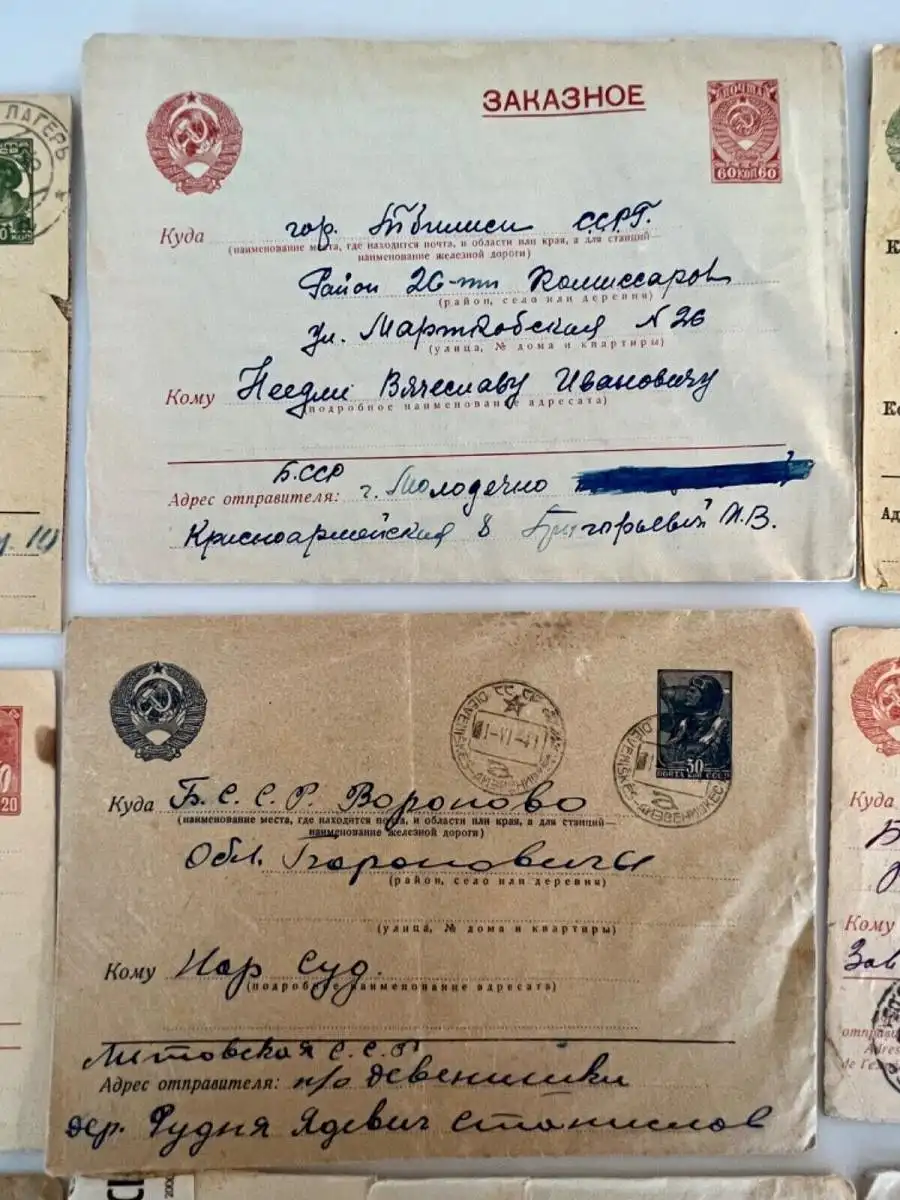 ЛАГЕРЬ
ЗАКАЗНОЕ
ПОЧТА
60 КОП 60
Куда гор. Тбилиси ССРГ.
(наименование места, где находится почта, и области или края, а для станций—
наименование железной дороги)
Район 26-ти Комиссаров
(район, село или деревня)
ул. Марткобская N 26
(улица, № дома и квартиры)
Кому Вячеславу Ивановичу
(подробное наименование адресата)
Б.ССР
Адрес отправителя: г. Молодечно
Красноармейская 8 Григорьевой М.В.
10
20
DIEVENIŠKĖS
1-VI-41
а
30
ПОЧТА СССР
DIEVENIŠKĖS
а
Куда Б.С.С.Р. Вороново
(наименование места, где находится почта, и области или края, а для станций—
наименование железной дороги)
Обл. Барановичи
(район, село или деревня)
(улица, № дома и квартиры)
Кому Нар Суд.
(подробное наименование адресата)
Литовская С.С.Р
Адрес отправителя: п/о Девенишки
дер. Рудня Ядевич Станислов
Куда
Кому
Зав